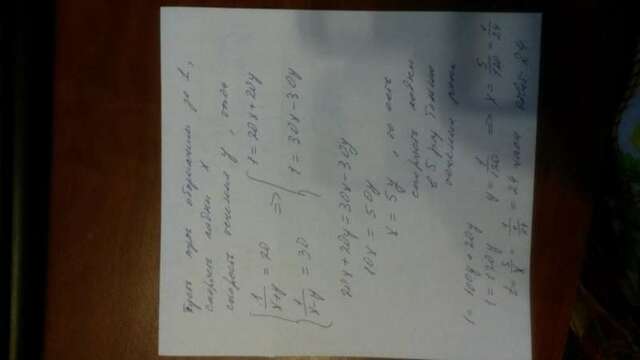 Пусть путь обозначим за 1,
скорость лодки x
скорость течения y, тогда
{ 1/(x+y) = 20 => { 1 = 20x+20y
{ 1/(x-y) = 30 { 1 = 30x-30y
20x+20y=30x-30y
10x=50y
x=5y, то есть
скорость лодки
в 5 раз больше
течения реки
1=100y+20y
1=120y y=1/120 => x=5/120=1/24
t=S/x=1/(1/24)=24 часа